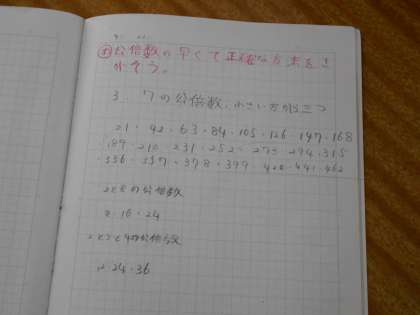 公倍数の早くて正確な方法をさ
がそう。
3 7の公倍数、小さい方から三つ
21・42・63・84・105・126・147・168
189・210・231・252・273・294・315
336・357・378・399・420・441・462
2と8の公倍数
8・16・24
2と3と4の公倍数
12・24・36